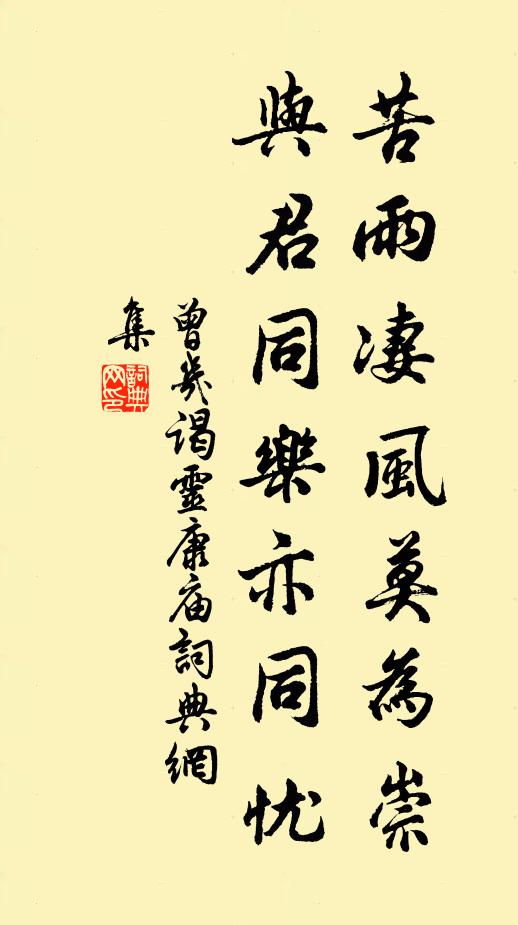 苦雨凄風莫為崇
與君同樂亦同忧
曾幾謁靈康庙詞典網
集
詞典
网印